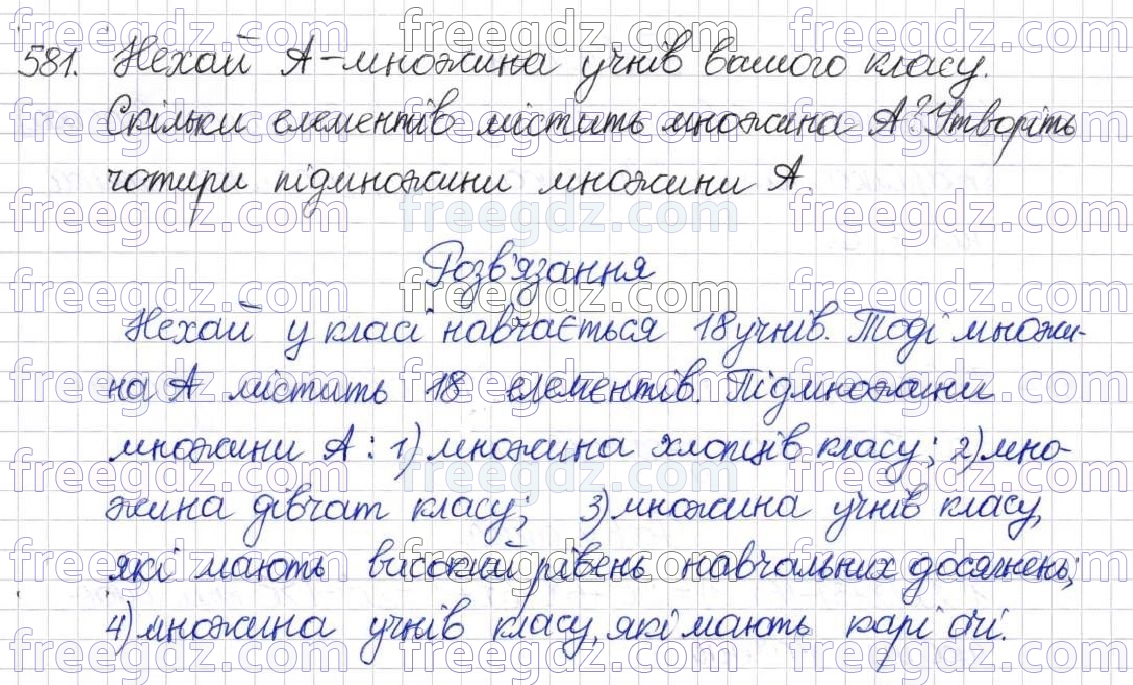 581. Нехай А - множина учнів вашого класу.
Скільки елементів містить множина А? Утворіть
чотири підмножини множини А
Розв'язання
Нехай у класі навчається 18 учнів. Тоді множи-
на А містить 18 елементів. Підмножини
множини А: 1) множина хлопців класу; 2) мно-
жина дівчат класу; 3) множина учнів класу,
які мають високий рівень навчальних досягнень;
4) множина учнів класу, які мають карі очі.
freegdz.com